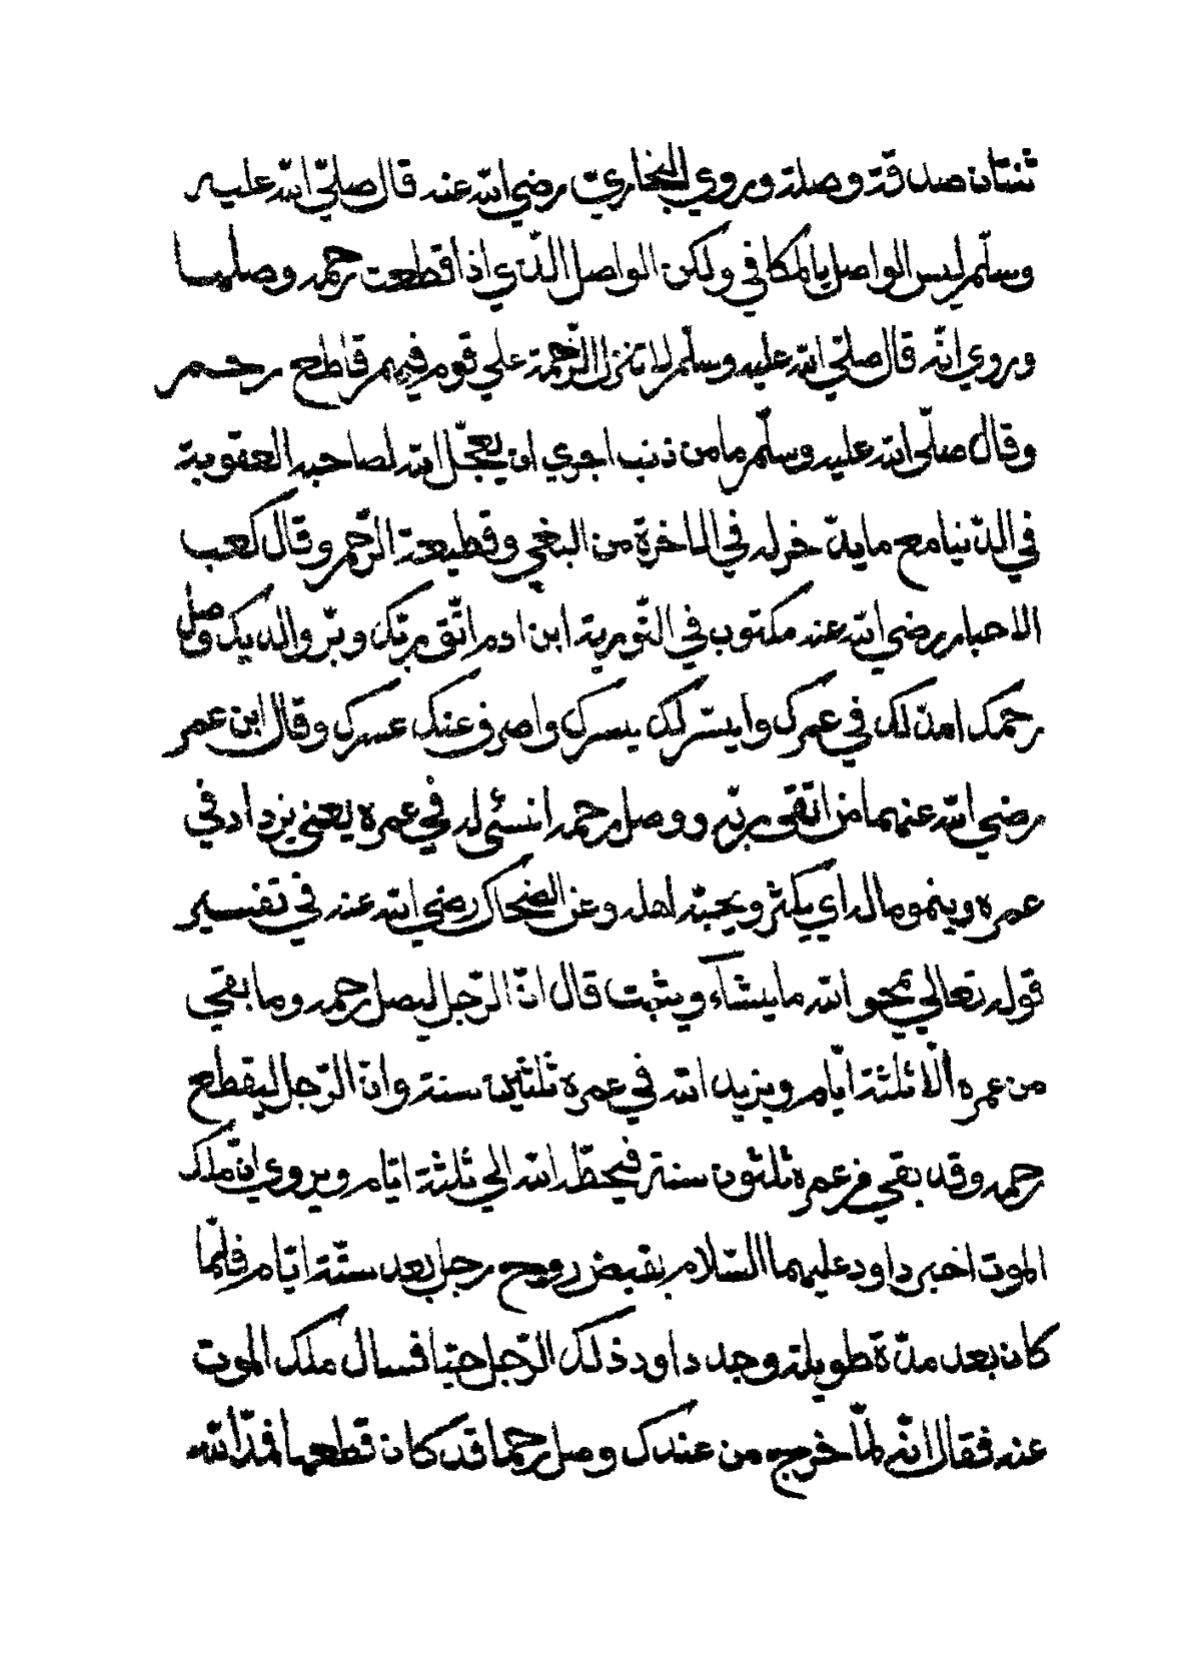 ثنتان صدقة وصلة وروي البخاري رضي الله عنه قال صلّي الله عليه
وسلّم ليس الواصل بالمكافي ولكن الواصل الذي اذا قطعت رحمه وصلها
وروي انّه قال صلّي الله عليه وسلّم لا تنزل الرّحمة علي قوم فيهم قاطع رحم
وقال صلّي الله عليه وسلّم ما من ذنب اجري ان يعجّل الله لصاحبه العقوبة
في الدّنيا مع ما يدّخر له في الاخرة من البغي وقطيعة الرّحم وقال كعب
الاحبار رضي الله عنه مكتوب في التّورية ابن ادم اتّق ربّك وبرّ والديك وصل
رحمك امدّ لك في عمرك وايسّر لك يسرك واصرف عنك عسرك وقال ابن عمر
رضي الله عنهما من اتّقي ربّه ووصل رحمه انسئي له في عمره يعني يزداد في
عمره وينمو ماله اي يكثر ويحبّه اهله وعن الضحاك رضي الله عنه في تفسير
قوله تعالي يمحو الله ما يشآء ويثبت قال انّ الرّجل ليصل رحمه وما بقي
من عمره الّا ثلثة ايّام ويزيد الله في عمره ثلثين سنة وانّ الرّجل ليقطع
رحمه وقد بقي من عمره ثلثون سنة فيحطّه الله الي ثلثة ايّام ويروي انّ ملك
الموت اخبر داود عليهما السّلام بقبض روح رجل بعد ستّة ايّام فلمّا
كان بعد مدّة طويلة وجد داود ذلك الرّجل حيّا فسال ملك الموت
عنه فقال انّه لمّا خرج من عندك وصل رحما قد كان قطعها فمدّ الله